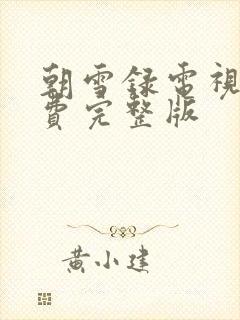 朝雪録電視
費完整版
黃小建